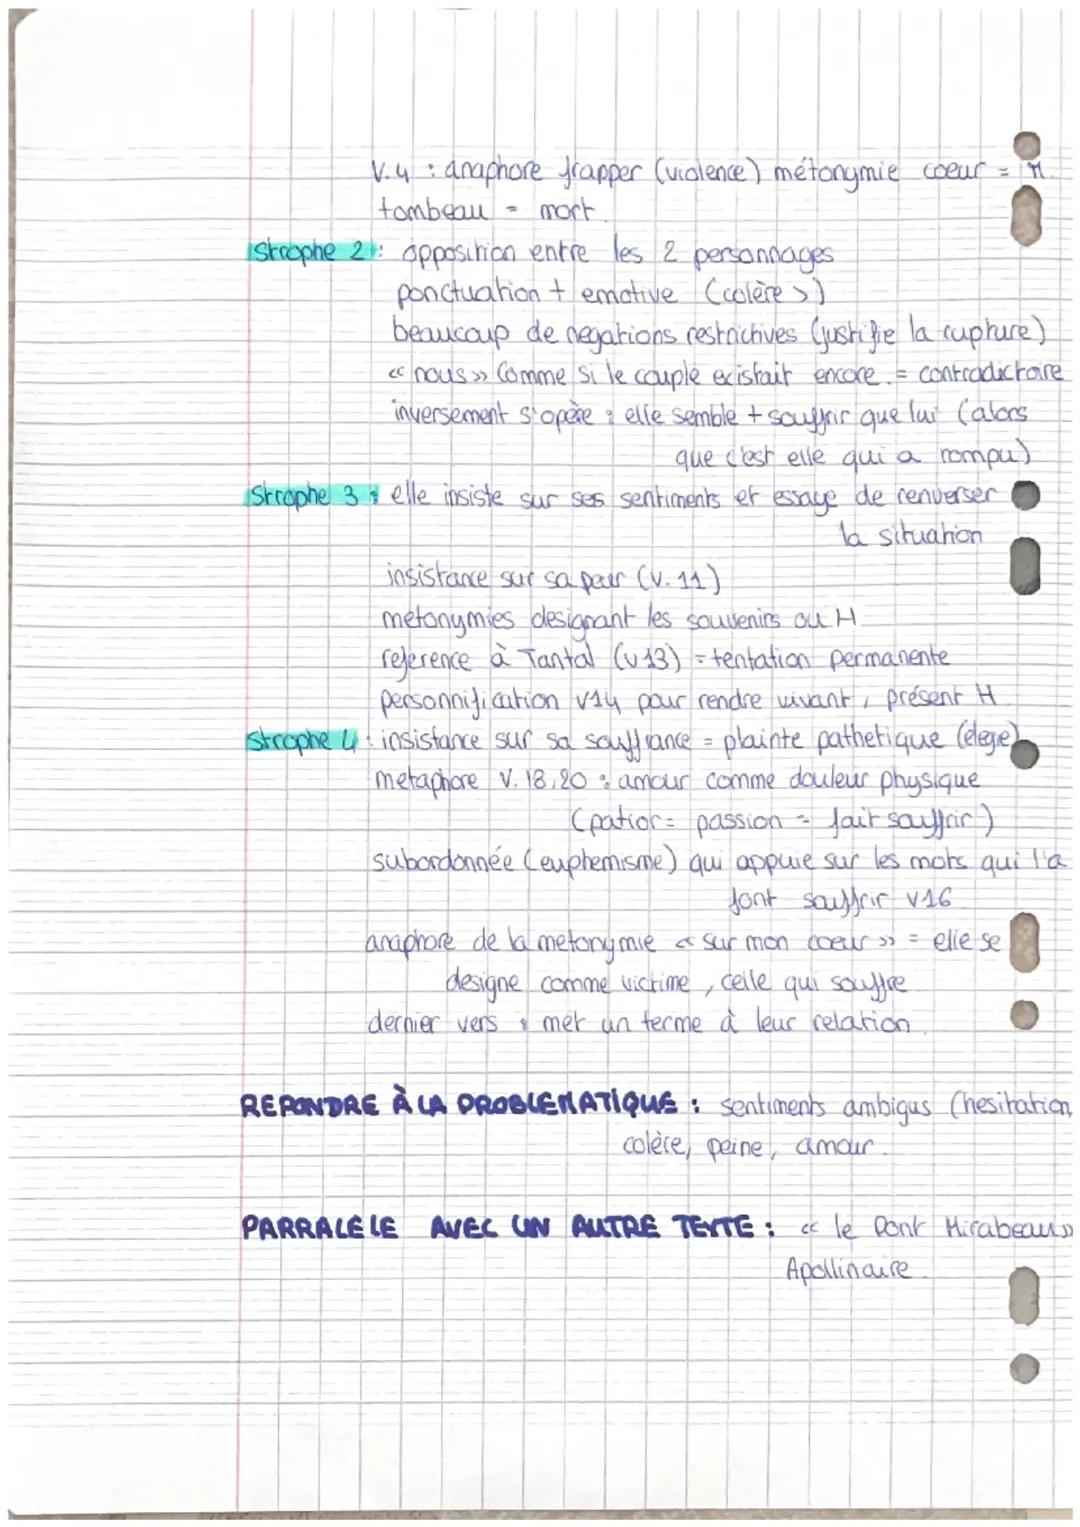 V.4 : anaphore frapper (violence) métonymie coeur = M.
tombeau = mort.
Strophe 2 : opposition entre les 2 personnages
ponctuation + emotive (colère >)
beaucoup de negations restrictives (justifie la rupture)
« nous » comme si le couple existait encore. = contradictoire
inversement s'opère : elle semble + souffrir que lui (alors
que c'est elle qui a rompu)
Strophe 3 : elle insiste sur ses sentiments et essaye de renverser
la situation
insistance sur sa peur (v. 11)
métonymies designant les souvenirs ou H
reference à Tantal (v 13) = tentation permanente
personnification v14 pour rendre vivant, présent H
Strophe 4 : insistance sur sa souffrance = plainte pathetique (élege)
metaphore V. 18,20 : amour comme douleur physique
(patior = passion = fait souffrir)
subordonnée (euphemisme) qui appuie sur les mots qui l'a
font souffrir v16
anaphore de la metonymie « sur mon coeur » = elle se
designe comme victime, celle qui souffre
dernier vers : met un terme à leur relation.
REPONDRE À LA PROBLEMATIQUE : sentiments ambigus (hesitation,
colère, peine, amour.
PARRALELE AVEC UN AUTRE TEXTE : « le Pont Mirabeau »
Apollinaire.